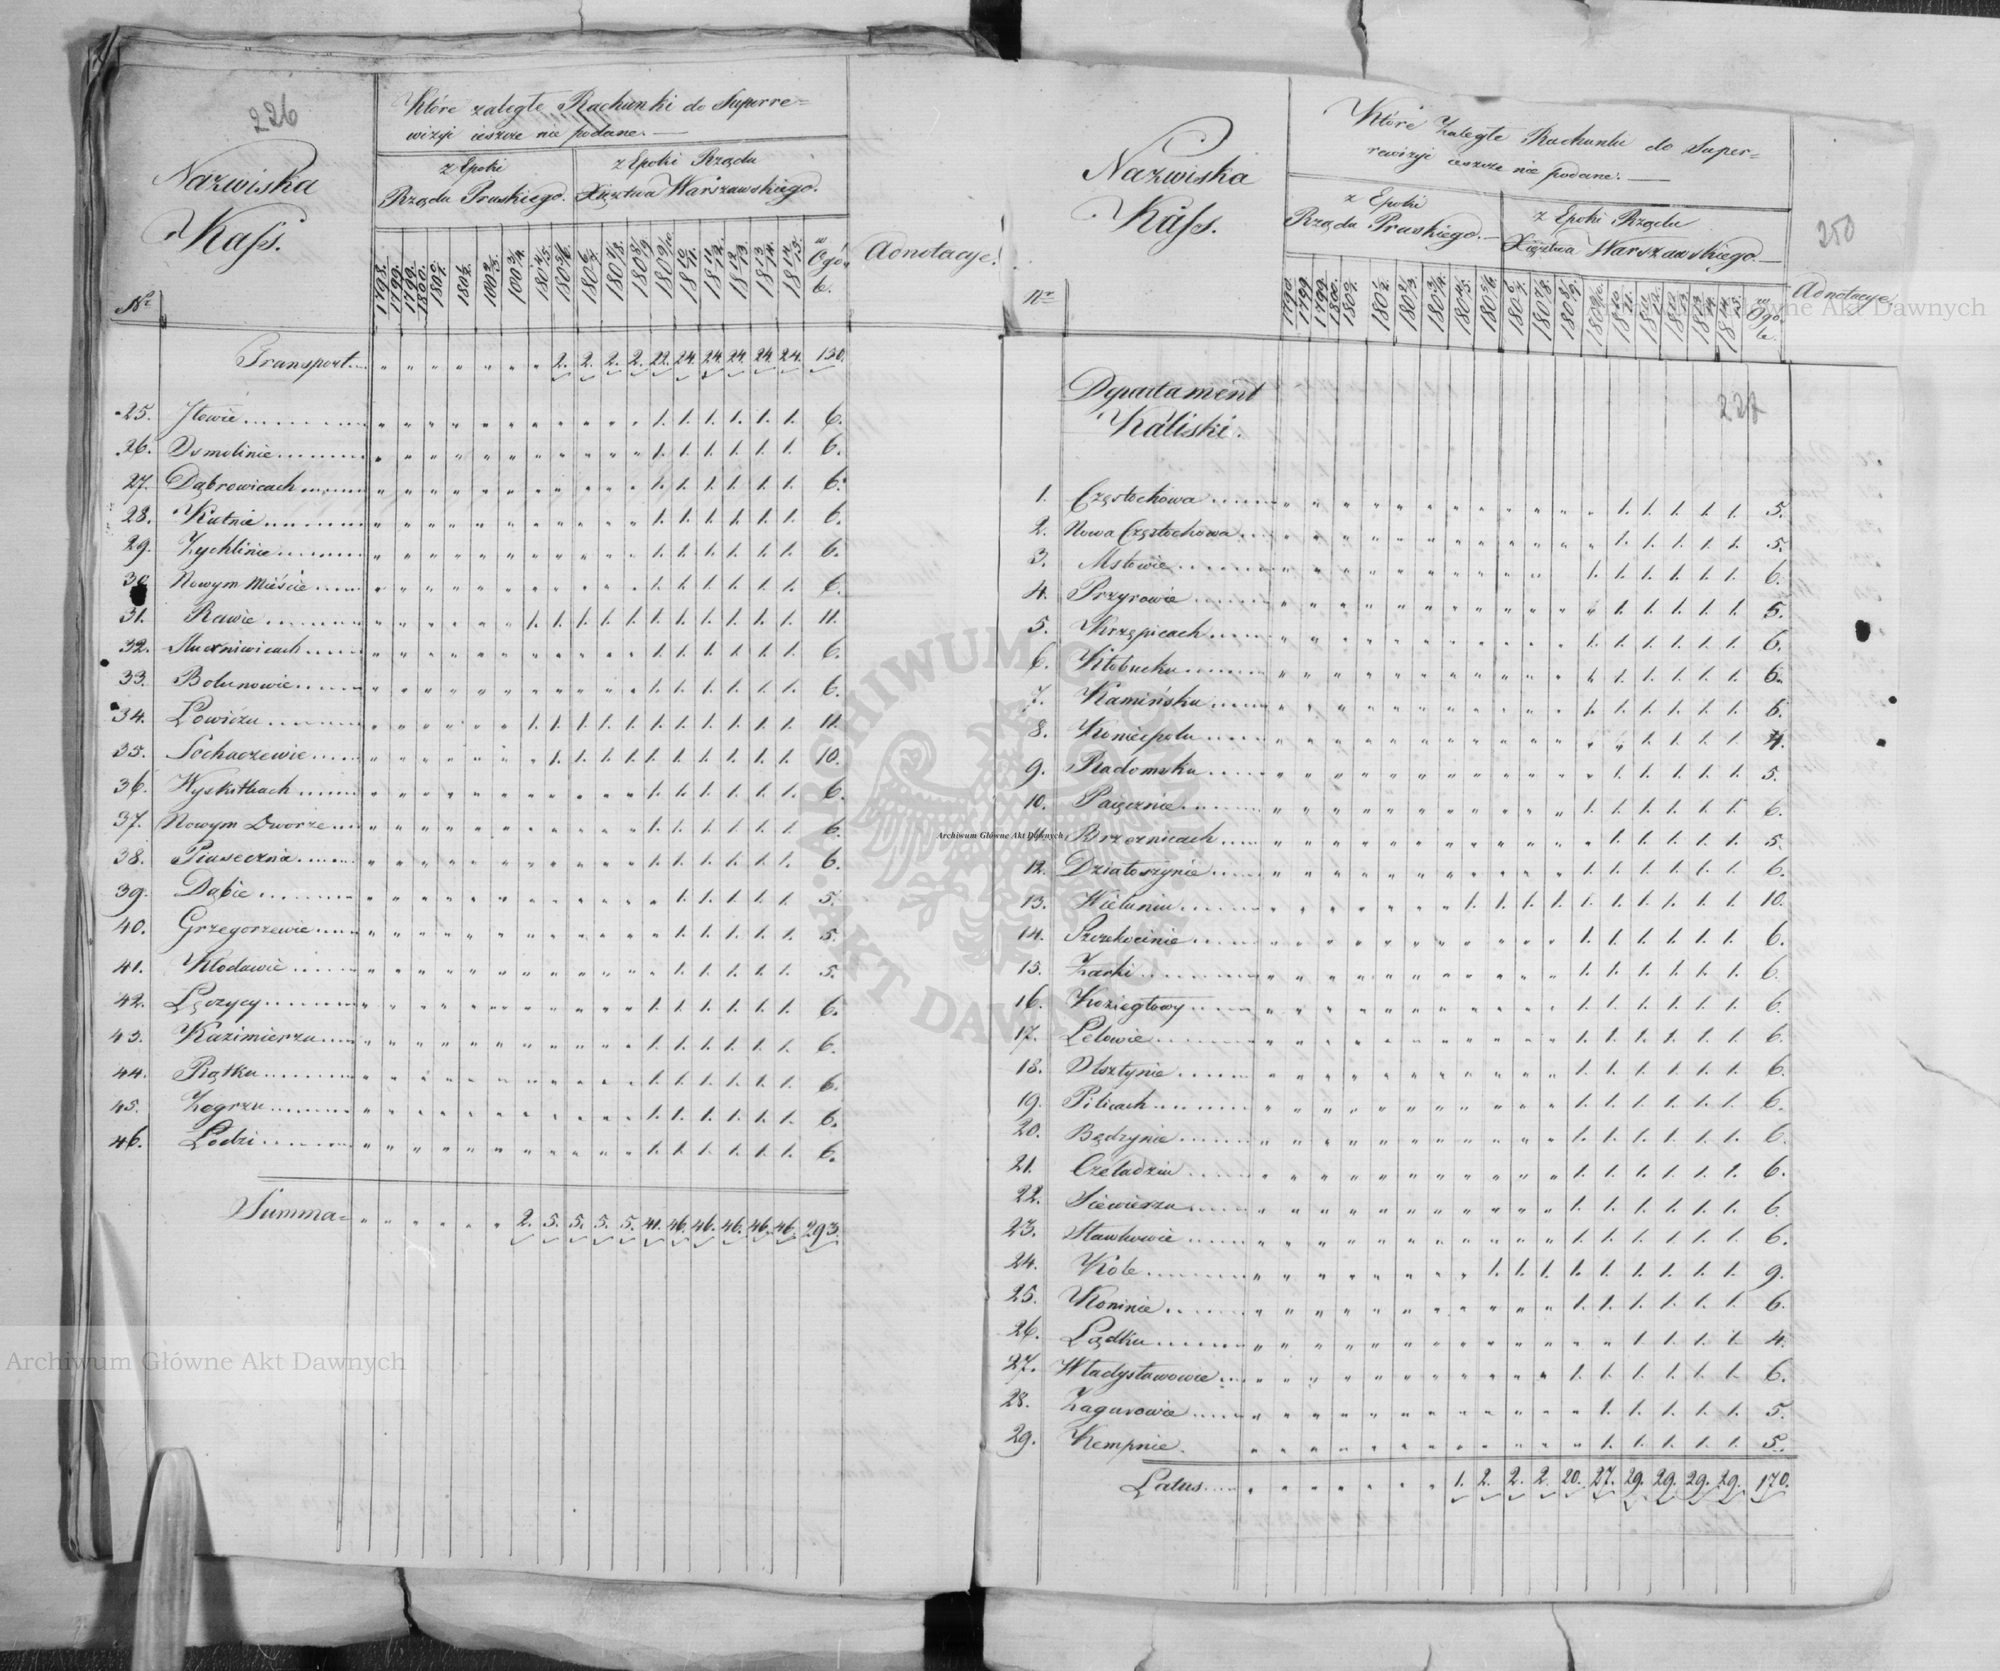 226
Nazwiska
Kass.
Nr
Które zaległe Rachunki do Superre=
wizyi ieszcze nie podane. —
z Epoki
Rządu Pruskiego.
z Epoki Rządu
Xięztwa Warszawskiego.
1798/1799. 1799/1800. 180 0/1. 180 1/2. 180 2/3. 180 3/4. 180 4/5. 180 5/6. 180 6/7. 180 7/8. 180 8/9. 180 9/10. 18 10/11. 18 11/12. 18 12/13. 18 13/14. 18 14/15. w Ogóle.
Adnotacye.
Transport " " " " " " " 2. 2. 2. 2. 22. 24. 24. 24. 24. 24. 150.
25. Iłowie 1. 1. 1. 1. 1. 1. 6.
26. Osmolinie 1. 1. 1. 1. 1. 1. 6.
27. Dąbrowicach 1. 1. 1. 1. 1. 1. 6.
28. Kutnie 1. 1. 1. 1. 1. 1. 6.
29. Zychlinie 1. 1. 1. 1. 1. 1. 6.
30. Nowym Mieście 1. 1. 1. 1. 1. 1. 6.
31. Rawie 1. 1. 1. 1. 1. 1. 1. 1. 1. 1. 1. 11.
32. Skierniwicach 1. 1. 1. 1. 1. 1. 6.
33. Bolimowie 1. 1. 1. 1. 1. 1. 6.
34. Łowiczu 1. 1. 1. 1. 1. 1. 1. 1. 1. 1. 1. 11.
35. Sochaczewie 1. 1. 1. 1. 1. 1. 1. 1. 1. 1. 10.
36. Wyskitkach 1. 1. 1. 1. 1. 1. 6.
37. Nowym Dworze 1. 1. 1. 1. 1. 1. 6.
38. Piaseczna 1. 1. 1. 1. 1. 1. 6.
39. Dąbie 1. 1. 1. 1. 1. 5.
40. Grzegorzewie 1. 1. 1. 1. 1. 5.
41. Kłodawie 1. 1. 1. 1. 1. 5.
42. Łęczycy 1. 1. 1. 1. 1. 1. 6.
43. Kazimierzu 1. 1. 1. 1. 1. 1. 6.
44. Piątku 1. 1. 1. 1. 1. 1. 6.
45. Zegrzu 1. 1. 1. 1. 1. 1. 6.
46. Łodzi 1. 1. 1. 1. 1. 1. 6.
Summa= " " " " " " 2. 5. 5. 5. 5. 41. 46. 46. 46. 46. 46. 293.
Nazwiska
Kass.
Nr
Które Zaległe Rachunki do Super=
rewizyi ieszcze nie podane. —
z Epoki
Rządu Pruskiego. —
z Epoki Rządu
Xięztwa Warszawskiego. —
250
Adnotacye.
w Ogóle.
227
Departament
Kaliski.
1. Częstochowa 1. 1. 1. 1. 1. 5.
2. Nowa Częstochowa 1. 1. 1. 1. 1. 5.
3. Mstowie 1. 1. 1. 1. 1. 1. 6.
4. Przyrowie 1. 1. 1. 1. 1. 5.
5. Krzepicach 1. 1. 1. 1. 1. 1. 6.
6. Kłobucku 1. 1. 1. 1. 1. 1. 6.
7. Kamińsku 1. 1. 1. 1. 1. 1. 6.
8. Koniecpolu 1. 1. 1. 1. 4.
9. Radomsku 1. 1. 1. 1. 1. 5.
10. Paięcznie 1. 1. 1. 1. 1. 1. 6.
11. Brzeznicach 1. 1. 1. 1. 1. 5.
12. Działoszynie 1. 1. 1. 1. 1. 1. 6.
13. Wieluniu 1. 1. 1. 1. 1. 1. 1. 1. 1. 1. 10.
14. Szczekocinie 1. 1. 1. 1. 1. 1. 6.
15. Zarki 1. 1. 1. 1. 1. 1. 6.
16. Koziegłowy 1. 1. 1. 1. 1. 1. 6.
17. Lelowie 1. 1. 1. 1. 1. 1. 6.
18. Olsztynie 1. 1. 1. 1. 1. 1. 6.
19. Pilicach 1. 1. 1. 1. 1. 1. 6.
20. Będzynie 1. 1. 1. 1. 1. 1. 6.
21. Czeladziu 1. 1. 1. 1. 1. 1. 6.
22. Siewierzu 1. 1. 1. 1. 1. 1. 6.
23. Sławkowie 1. 1. 1. 1. 1. 1. 6.
24. Kole 1. 1. 1. 1. 1. 1. 1. 1. 1. 9.
25. Koninie 1. 1. 1. 1. 1. 1. 6.
26. Lądku 1. 1. 1. 1. 4.
27. Władysławowie 1. 1. 1. 1. 1. 1. 6.
28. Zagurowie 1. 1. 1. 1. 1. 5.
29. Kempnie. 1. 1. 1. 1. 1. 5.
Latus " " " " " " " 1. 2. 2. 2. 20. 27. 29. 29. 29. 29. 170.
ARCHIWUM GŁÓWNE AKT DAWNYCH
Archiwum Główne Akt Dawnych
Archiwum Główne Akt Dawnych
Główne Akt Dawnych